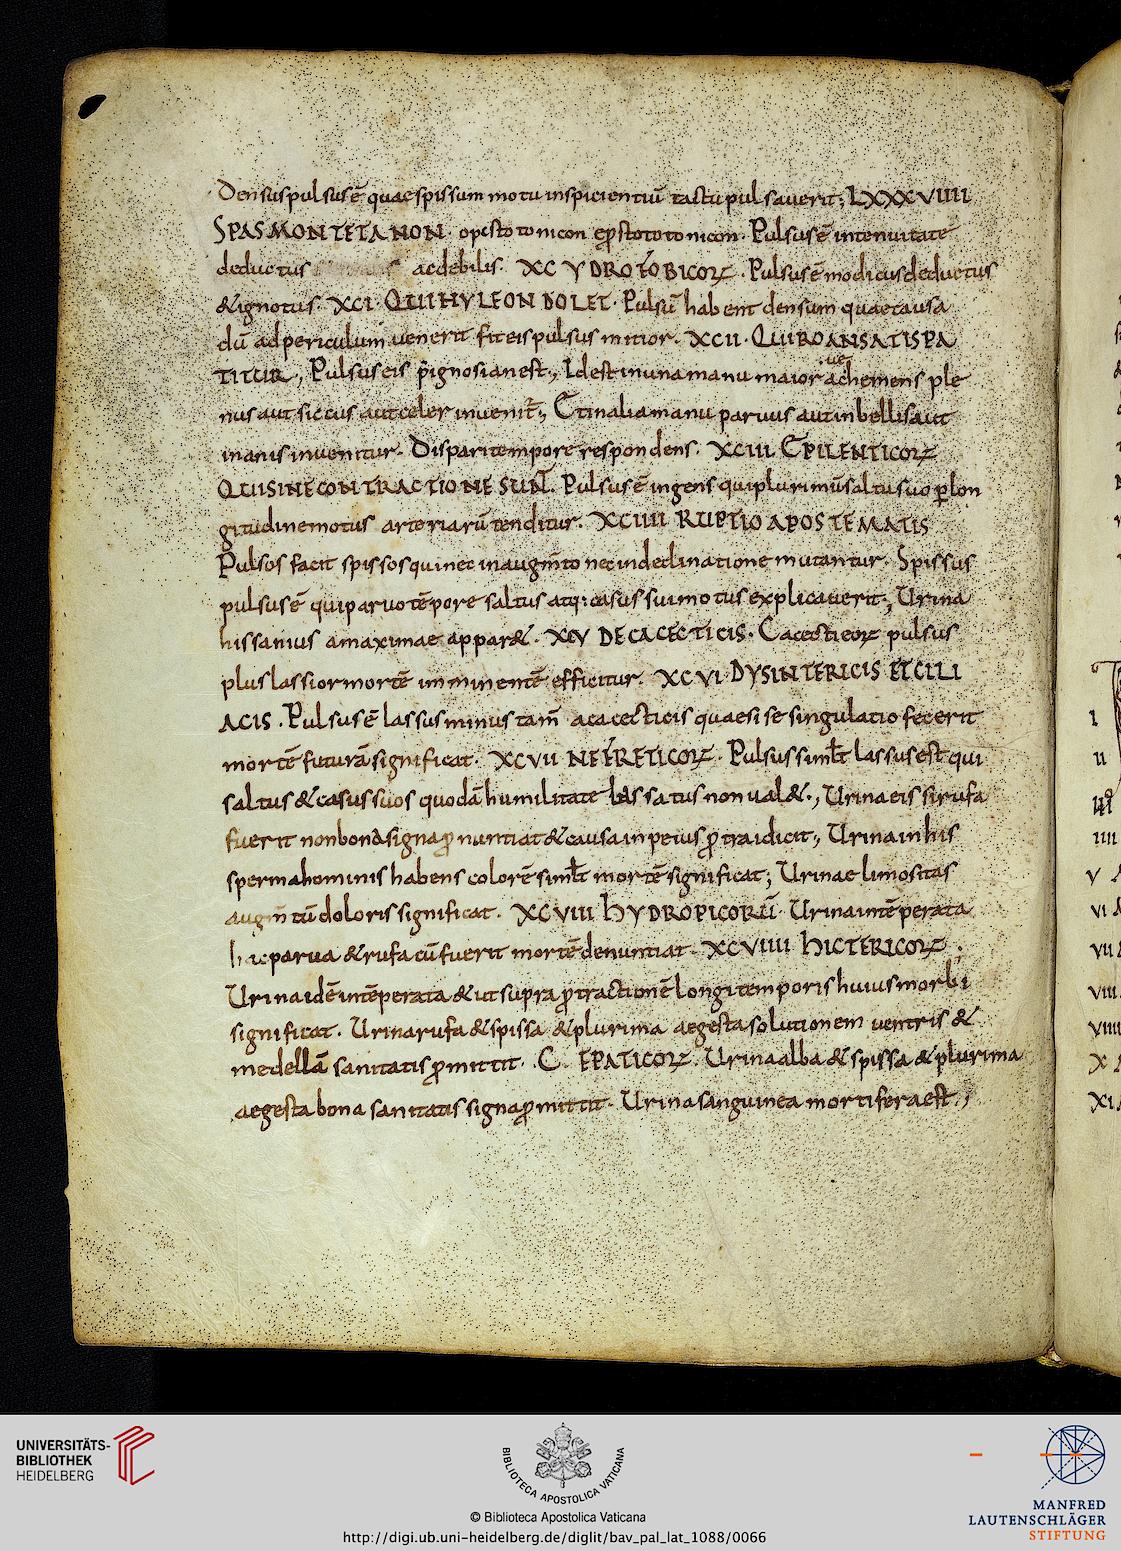 Densus pulsus ē quae spissum motu inspicientiū tactu pulsaverit; LXXXVIIII
SPASMON TETANON. opistotonicon epstototonicon. Pulsus ē in tenuitate
deductus ac debilis. XC YDROFOBICOR. Pulsus ē modicus deductus
& ignotus. XCI. QUI HYLEON DOLET. Pulsū habent densum quae causa
dū ad periculum venerit fit eis pulsus mitior. XCII. QUI ROANSATIS PA
TITUR; Pulsus eis pignosian est; Idest in una manu maior ac vehemens ple
nus aut siccus aut celer invenit; Et in alia manu parvus aut inbellis aut
inanis invenitur. Dispari tempore respondens. XCIII EPILENTICOR
QUI SINE CONTRACTIONE SUNT. Pulsus ē ingens qui plurimū saltu suo p lon
gitudine motus arteriarū tenditur. XCIIII RUPTIO APOSTEMATIS
Pulsos facit spissos qui nec in augmto nec in declinatione mutantur. Spissus
pulsus ē qui parvo tēpore saltus atq: casus sui motus explicaverit; Urina
his sanius a maximae appar&. XCV DE CACECTICIS. Cacecticor pulsus
plus lassior mortē imminentē efficitur. XCVI DYSINTERICIS ET CILI
ACIS. Pulsus ē lassus minus tam̄ a cacecticis quae si se singulatio fecerit
mortē futurā significat. XCVII NEFRETICOR. Pulsus simlt lassus est qui
saltus & casus suos quodā humilitate lassatus non val&; Urina eis si rufa
fuerit non bona signa p nuntiat & causa in peius p tra idicit; Urina in his
sperma hominis habens colorē simlt mortē significat; Urinae limositas
augm̄tū doloris significat. XCVIII HYDROPICORŪ. Urina intēperata
haec parva & rufa cū fuerit mortē denuntiat. XCVIIII HICTERICOR.
Urina idē intēperata & ut supra p tractionē longi temporis huius morbi
significat. Urina rufa & spissa & plurima aegesta solutionem ventris &
medellā sanitatis p mittit. C. EPATICOR. Urina alba & spissa & plurima
aegesta bona sanitatis signa p mittit. Urina sanguinea mortifera est;
I
II
III
IIII
V
VI
VII
VIII
VIIII
X
XI
UNIVERSITÄTS-
BIBLIOTHEK
HEIDELBERG
BIBLIOTECA APOSTOLICA VATICANA
© Biblioteca Apostolica Vaticana
http://digi.ub.uni-heidelberg.de/diglit/bav_pal_lat_1088/0066
MANFRED
LAUTENSCHLÄGER
STIFTUNG